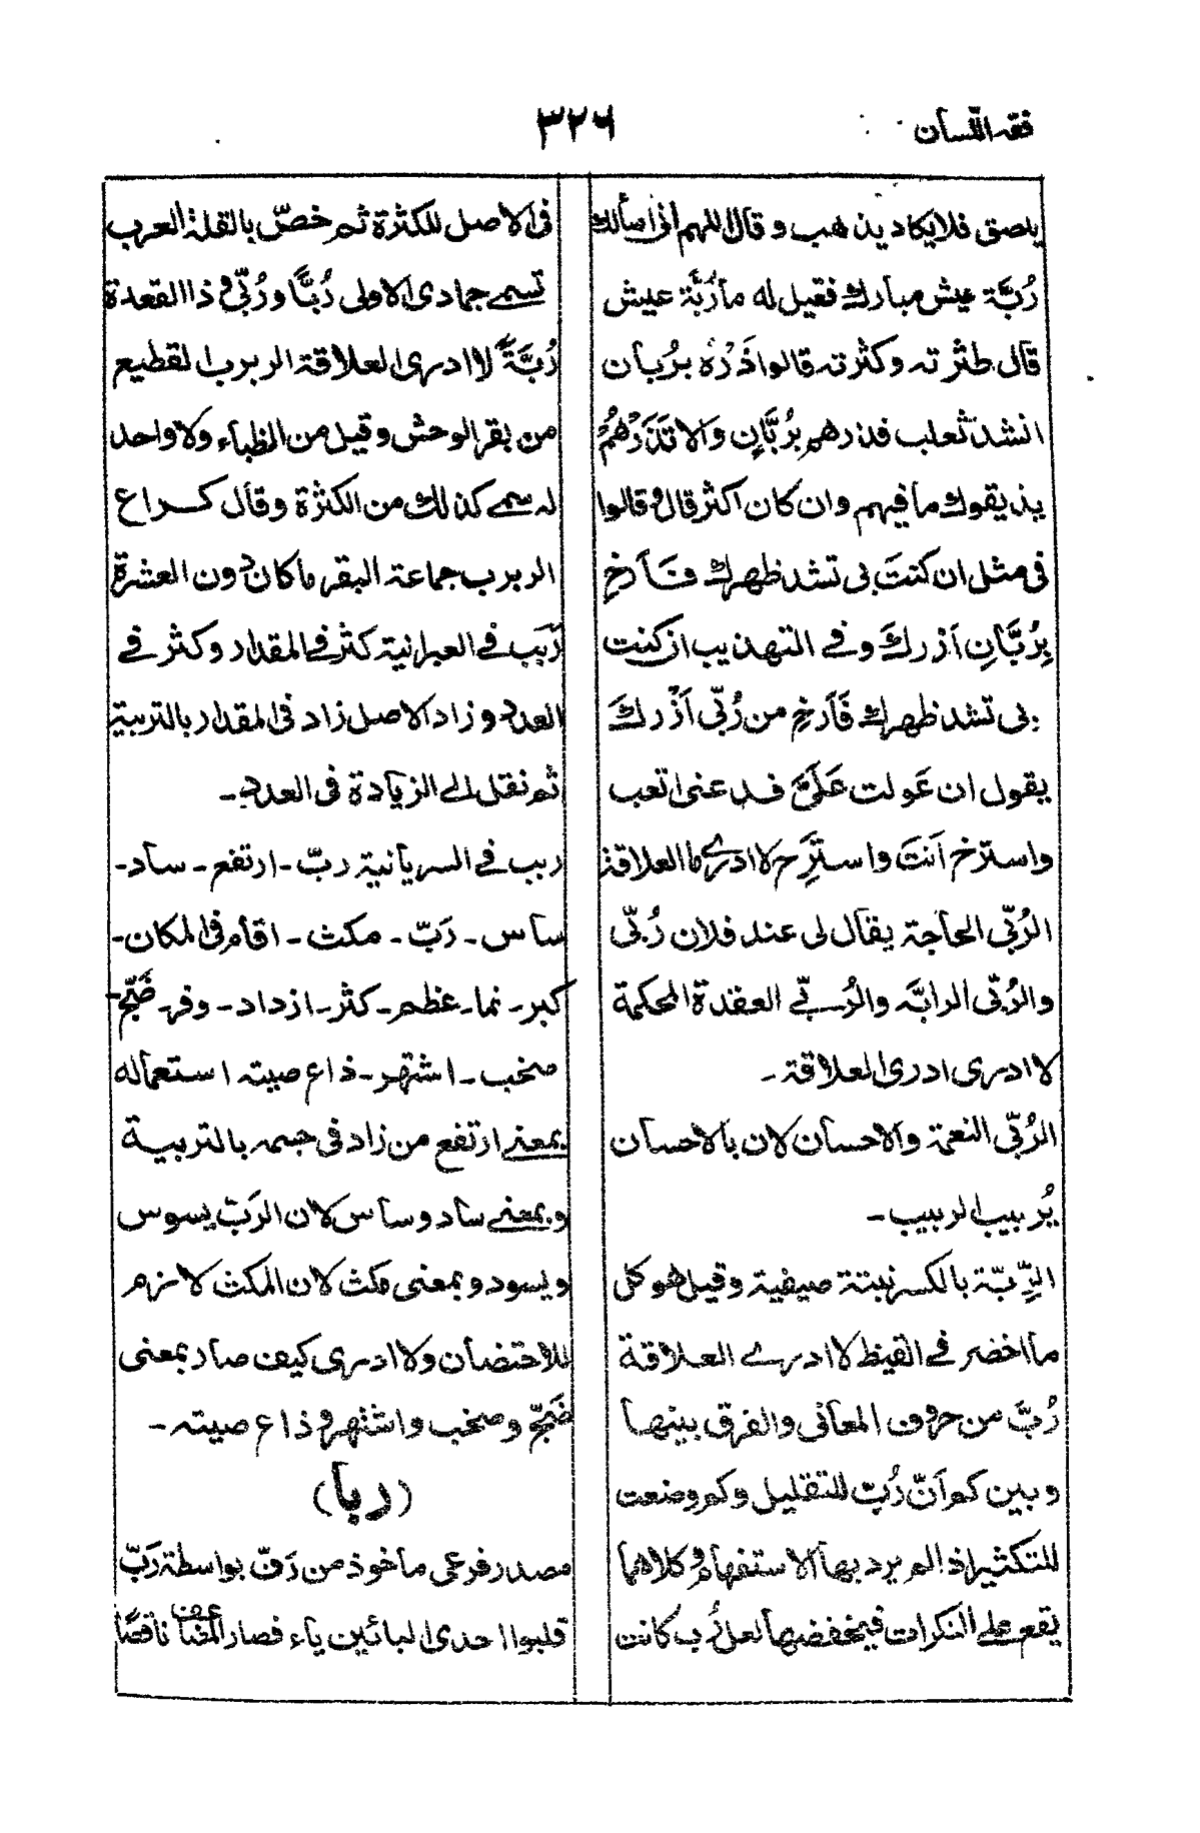 فقہ اللسان
٣٢٦
يلصق فلا يكاد يذهب وقال اللهم انى اسألك
رُبَّة عيش مبارك فقيل له ما رُبَّة عيش
قال طثرته وكثرته قالوا ذَرْهُ برُبان
انشد ثعلب فذرهم برُبَّانٍ وَالا تَذَرْهُمُ
يذيقوك ما فيهم وان كان اكثر قال و قالوا
فى مثل ان كنتَ بى تشد ظهرك فَأَرخِ
بِرُبَّانِ اَزْركَ وفى التهذيب ان كنت
بى تشد ظهرك فَاَرخِ من رُبّى اَزْركَ
يقول ان عَولت عَلَيَّ فدعنى اتعب
واسترخ اَنتَ واستَرِح لا ادرى ما العلاقة
الرُبّى الحاجة يقال لى عند فلان رُبّى
والرُبّى الرابَّه والرُبّى العقدة المحكمة
لا ادرى ادرى العلاقة۔
الرُبّى النعمة والاحسان لان بالاحسان
يُرَبيب الربيب۔
الرِّبّة بالكسر نبتة صيفية وقيل هو كل
ما اخضر فى القيظ لا ادرى العلاقة
رُبَّ من حروف المعانى والفرق بينها
وبين كم اَنّ رُبّ للتقليل وكم وضعت
للتكثير اذا لم يرد بها الاستفهام و كلاهما
يقع على النكرات فيخفضها لعل رُب كانت
فى الاصل للكثرة ثم خصّ بالقلة العرب
تسمى جمادى الاولى رُبًّا ورُبّى و ذا القعدة
رُبَّةَ لا ادرى العلاقة الربرب القطيع
من بقر الوحش وقيل من الظباء ولا واحد
له سمى كذلك من الكثرة وقال كراع
الربرب جماعة البقر ما كان دون العشرة
رَبَب فى العبرانية كثر فى المقدار وكثر فى
العدد وزاد الاصل زاد فى المقدار بالتربية
ثم نقل الى الزيادة فى العدد۔
ربب فى السريانية ربّ۔ ارتفع۔ ساد۔
ساس۔ رَبّ۔ مكث۔ اقام فى المكان۔
كبر۔ نما۔ عظم۔ كثر۔ ازداد۔ وفر۔ ضَجّ۔
صخب۔ اشتهر۔ ذاع صيته استعماله
بمعنى ارتفع من زاد فى جسمه بالتربية
وبمعنى ساد وساس لان الرَبّ يسوس
ويسود وبمعنى مكث لان المكث لازم
للاحتضان ولا ادرى كيف صار بمعنى
ضَجّ وصخب واشتهر و ذاع صيته۔
(ربا)
مصدر فرعى ماخوذ من رَفّ بواسطة رَبّ
قلبوا احدى البائين ياء فصار المضاعف ناقصًا